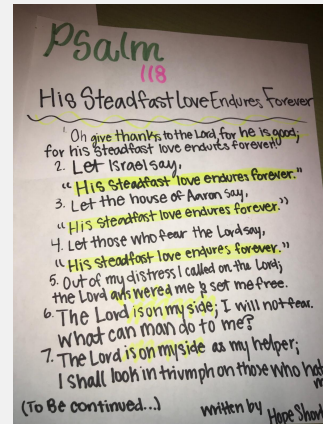 Psalm
118
His Steadfast Love Endures Forever
1. Oh give thanks to the Lord, for he is good;
for his steadfast love endures forever!
2. Let Israel say,
"His steadfast love endures forever."
3. Let the house of Aaron say,
"His steadfast love endures forever."
4. Let those who fear the Lord say,
"His steadfast love endures forever."
5. Out of my distress I called on the Lord;
the Lord answered me & set me free.
6. The Lord is on my side; I will not fear.
What can man do to me?
7. The Lord is on my side as my helper;
I shall look in triumph on those who hat
(To Be continued...)
written by Hope